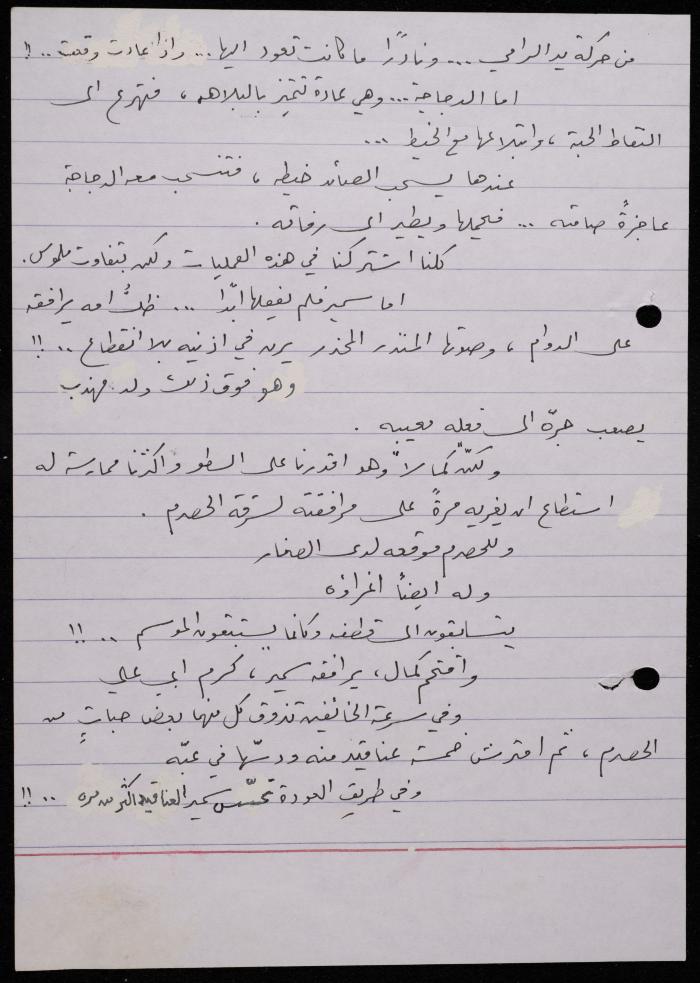 من حركة يد الرامي ... ونادرًا ما كانت تعود اليها ... واذا عادت وقعت .. !!
اما الدجاجة ... وهي عادة تتميز بالبلاهه ، فتهرع الى
التقاط الحبة ، وابتلاعها مع الخيط ...
عندها يسحب الصائد خيطه ، فتنسحب معه الدجاجة
عاجزةً صامته ... فيحملها ويطير الى رفاقه .
كلنا اشتركنا في هذه العمليات ولكن بتفاوت ملموس .
اما سمير فلم يفعلها ابدًا ... ظلُّ امه يرافقه
على الدوام ، وصوتها المنذر المحذر يرن في اذنيه بلا انقطاع .. !!
وهو فوق ذلك ولد مهذب
يصعب جرّه الى فعله معيبه .
ولكنّ كمالاً وهو اقدرنا على السطو واكثرنا ممارسة له
استطاع ان يغريه مرةً على مرافقته لسرقة الحصرم .
وللحصرم موقعه لدى الصغار
وله ايضاً اغراؤه
يتسابقون الى قطفه وكأنما يستبقون الموسم .. !!
واقتحم كمال ، يرافقه سمير ، كرم ابي علي
وفي سرعة الخائفين تذوق كل منهما بعض حباتٍ من
الحصرم ، ثم افترش خمسة عناقيد منه ودسّها في عبّه
وفي طريق العودة تحسّس سمير العناقيد اكثر من مره .. !!